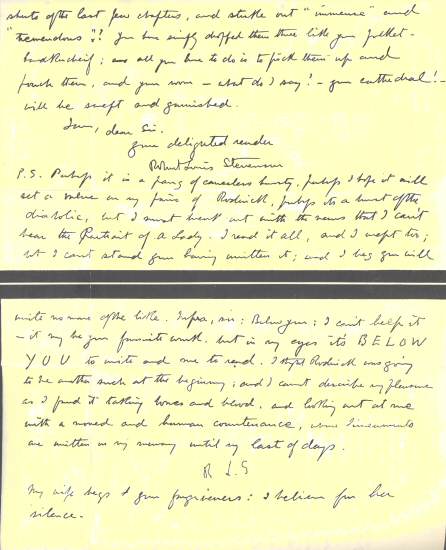 sheets of the last few chapters, and strike out "immense" and
"tremendous"? You have simply dropped them there like your pocket-
handkerchief; and all you have to do is to pick them up and
pouch them, and your room - what do I say? - your cathedral! -
will be swept and garnished.
I am, dear Sir,
your delighted reader
Robert Louis Stevenson
P.S. Perhaps it is a pang of causeless honesty, perhaps I hope it will
set a value on my praise of Roderick, perhaps it's a burst of the
diabolic, but I must break out with the news that I can't
bear the Portrait of a Lady. I read it all, and I wept too;
but I can't stand your having written it; and I beg you will
write no more of the like. Infra, sir; Below you: I can't help it
- it may be your favourite work, but in my eyes it's BELOW
YOU to write and me to read. I thought Roderick was going
to be another such at the beginning; and I cannot describe my pleasure
as I found it taking bones and blood, and looking out at me
with a moved and human countenance, whose lineaments
are written in my memory until my last of days.
R L S
My wife begs your forgiveness; I believe for her
silence.